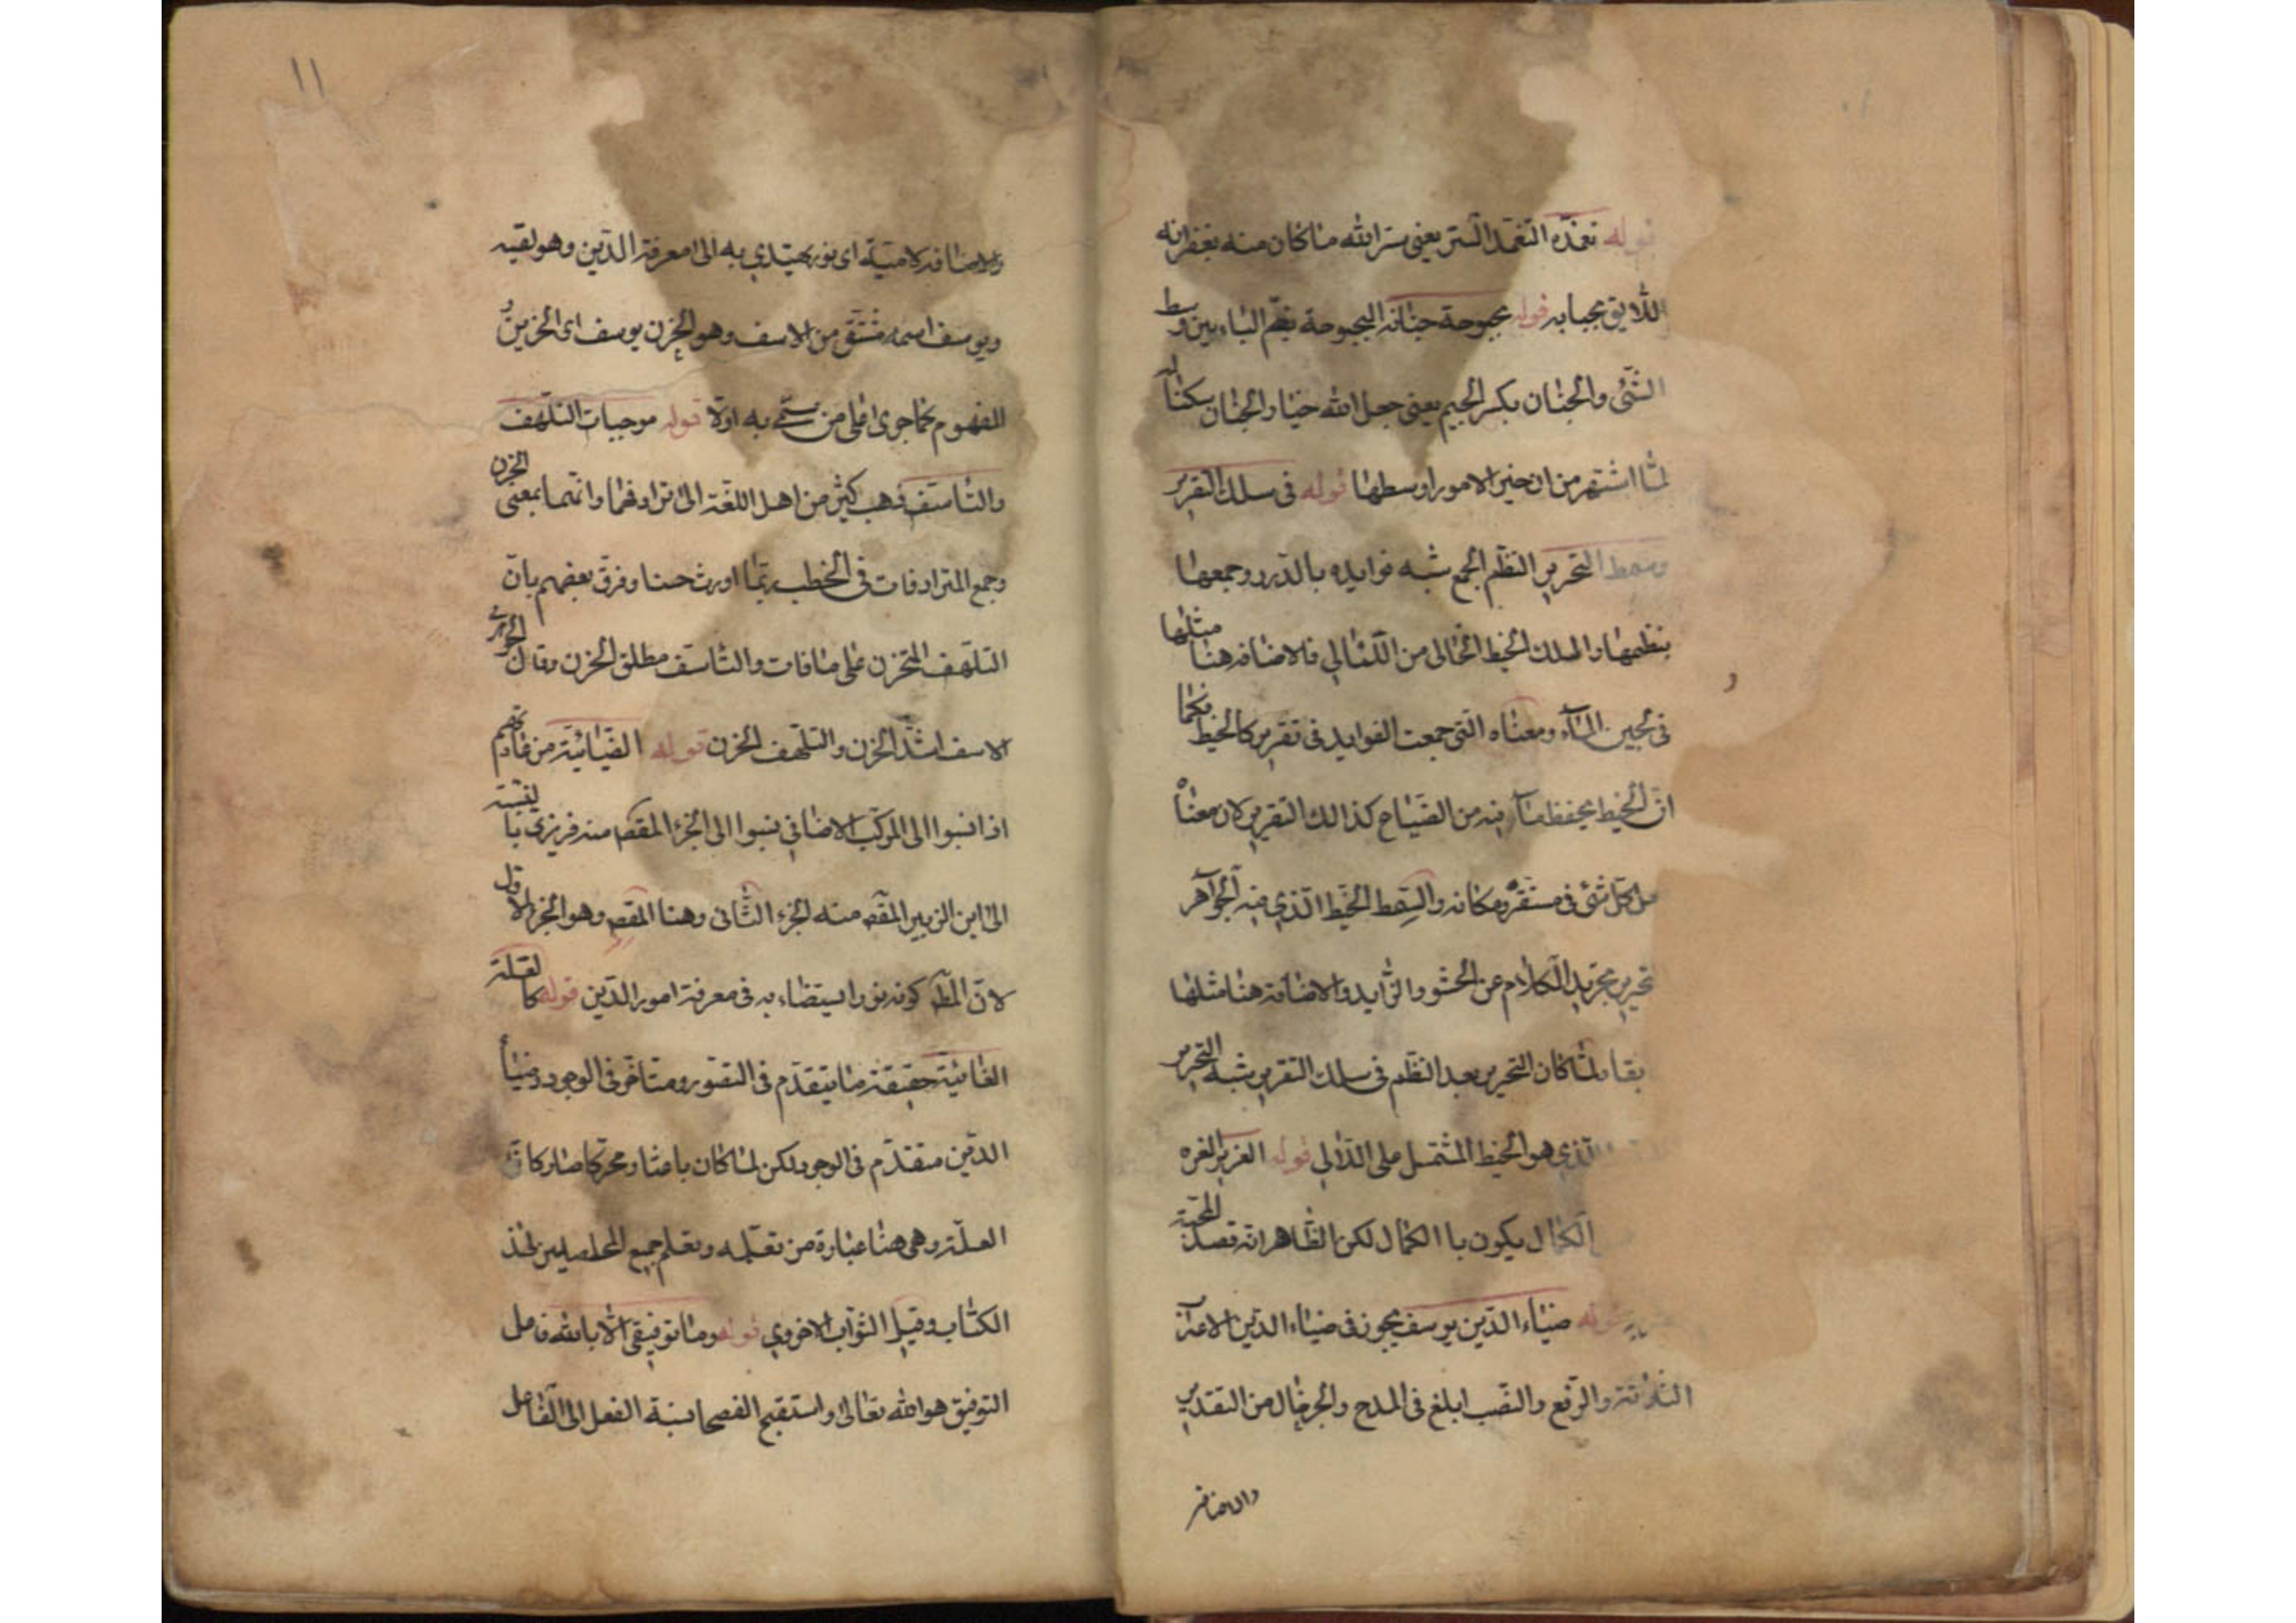 قوله تغمّده التغمد الستر يعني ستر الله ما كان منه بغفرانه
اللايق بجبابه قوله بحبوحة جنانه البحبوحة بضم الباء بين وسط
الشئ والجنان بكسر الجيم يعنى جعل الله خيار الجنان سكناله
لما اشتهر من ان خير الامور اوسطها قوله فى سلك التقرير
وسمط التحرير النظم الجمع شبه فوايده بالدرر وجمعها
بنظمها والسلك الخيط الخالى من اللئالي فالاضافه هنا مثلها
فى لجين الماء ومعناه التى جمعت الفوايد فى تقرير كالخيط فكما
ان الخيط يحفظ ما فيه من الضياع كذالك التقرير لان معناه
كل شئ فى مستقره ومكانه والسمط الخيط الذي فيه الجواهر
تحرير تجريد الكلام عن الحشو والزايد والاضافة هنا مثلها
لما كان التحرير بعد النظم فى سلك التقرير شبه التحرير
الذي هو الخيط المشتمل على اللالي قوله العزيز الغره
الكمال يكون با الكمال لكن الظاهر انه قصد المحبة
قوله ضياء الدين يوسف يجوز فى ضياء الدين الاعراب
الثلاثة والرفع والنصب ابلغ فى المدح والجر خال من التقدير
والاضافة
١١
والاضافه لامية اى نور يهتدي به الى معرفة الدين وهو لقبه
ويوسف اسمه مشتق من الاسف وهو الحزن يوسف اى الحزين
المفهوم كما جرى على من سمى به اولا قوله موجبات التلهف
والتاسف ذهب كثير من اهل اللغة الى ترادفهما وانهما بمعنى الحزن
وجمع المترادفات فى الخطب ربما اورث حسنا وفرق بعضهم بان
التلهف التحزن على ما فات والتاسف مطلق الحزن وقال الجوهرى
الاسف اشد الحزن والتلهف الحزن قوله الضيائية من عادتهم
اذا نسبوا الى المركب الاضافي نسبوا الى الجزء المقصد منه فزبزي با لنسبة
الى ابن الزبير المقصد منه الجزء الثانى وهنا المقصد وهو الجزء الاول
لان المط كونه نورا يستضاء به فى معرفة امور الدين قوله كالعلة
الغائية حقيقة ما يتقدم فى التصور ومتاخر فى الوجود وضياء
الدين متقدم فى الوجود لكن لما كان باعثا ومحركا صار كانه
العلة وهى هنا عبارة من تعلمه وتعلم جميع المحصلين لهذ
الكتاب وقيل الثواب الاخروي قوله وما توفيقى الا بالله فاعل
التوفيق هو الله تعالى واستقبح الفصحا نسبة الفعل الى الفاعل